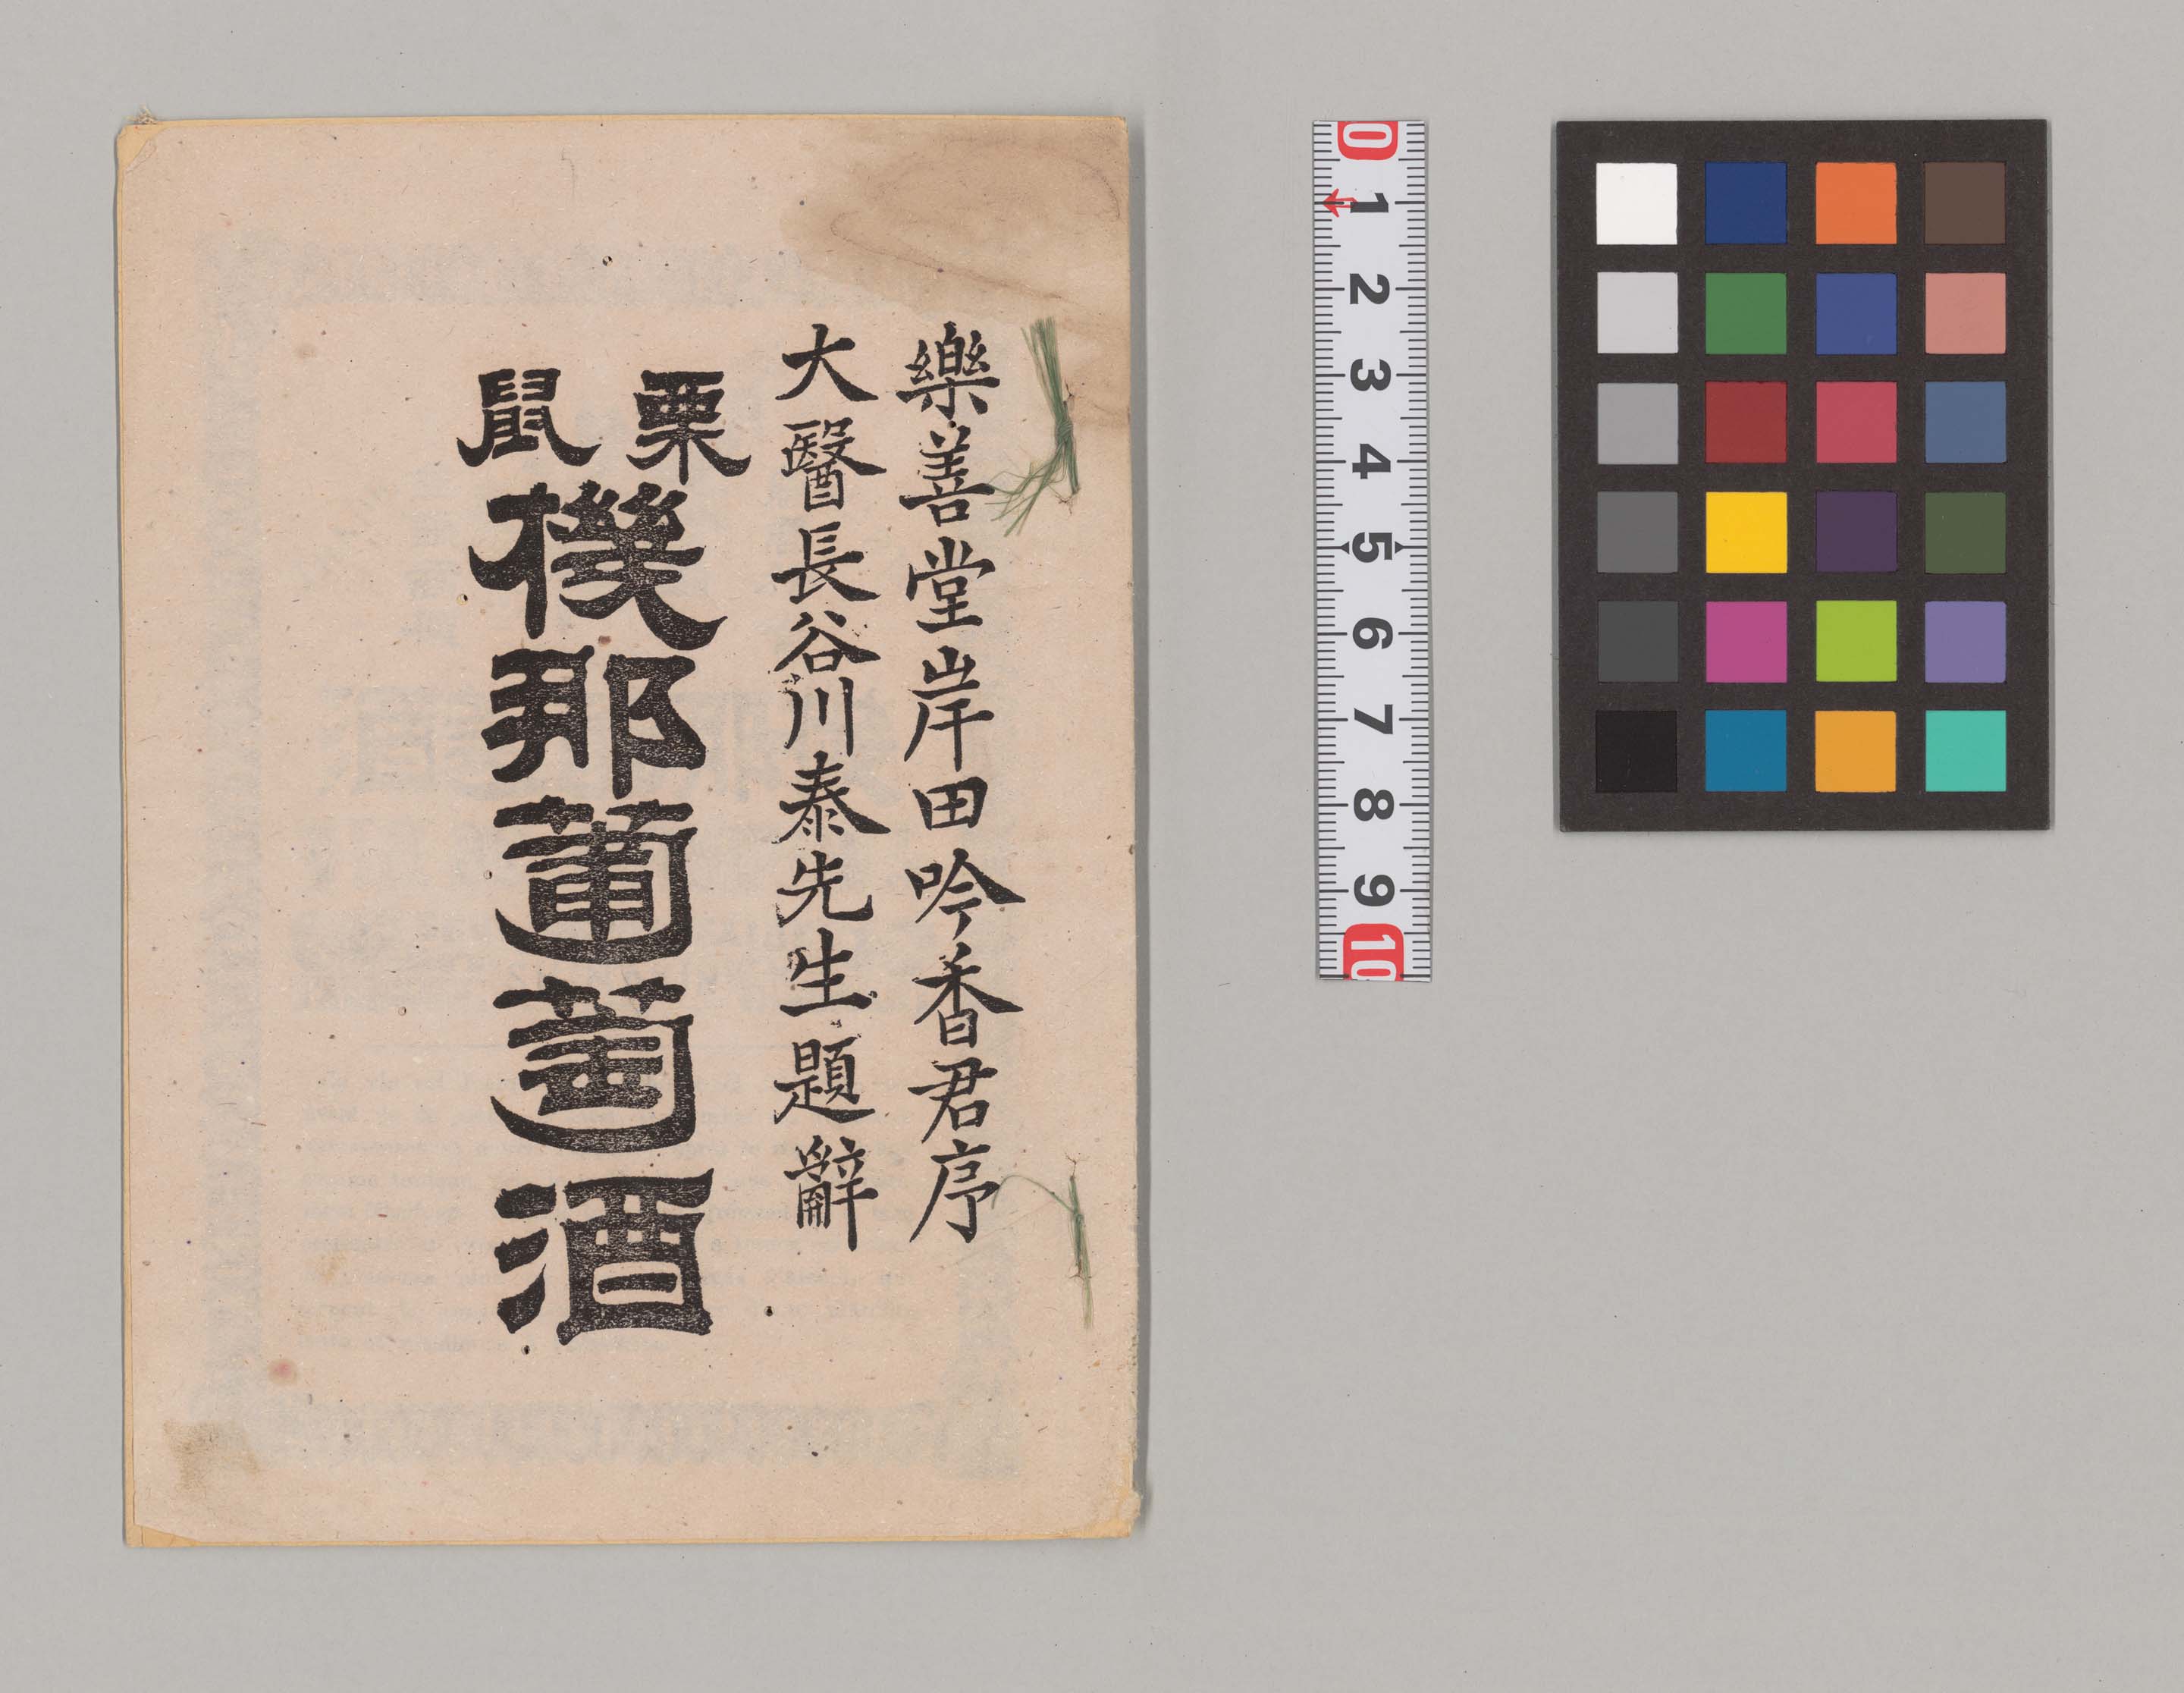 樂善堂岸田吟香君序
大醫長谷川泰先生題辭
栗鼠
機那葡萄酒
0 1 2 3 4 5 6 7 8 9 10